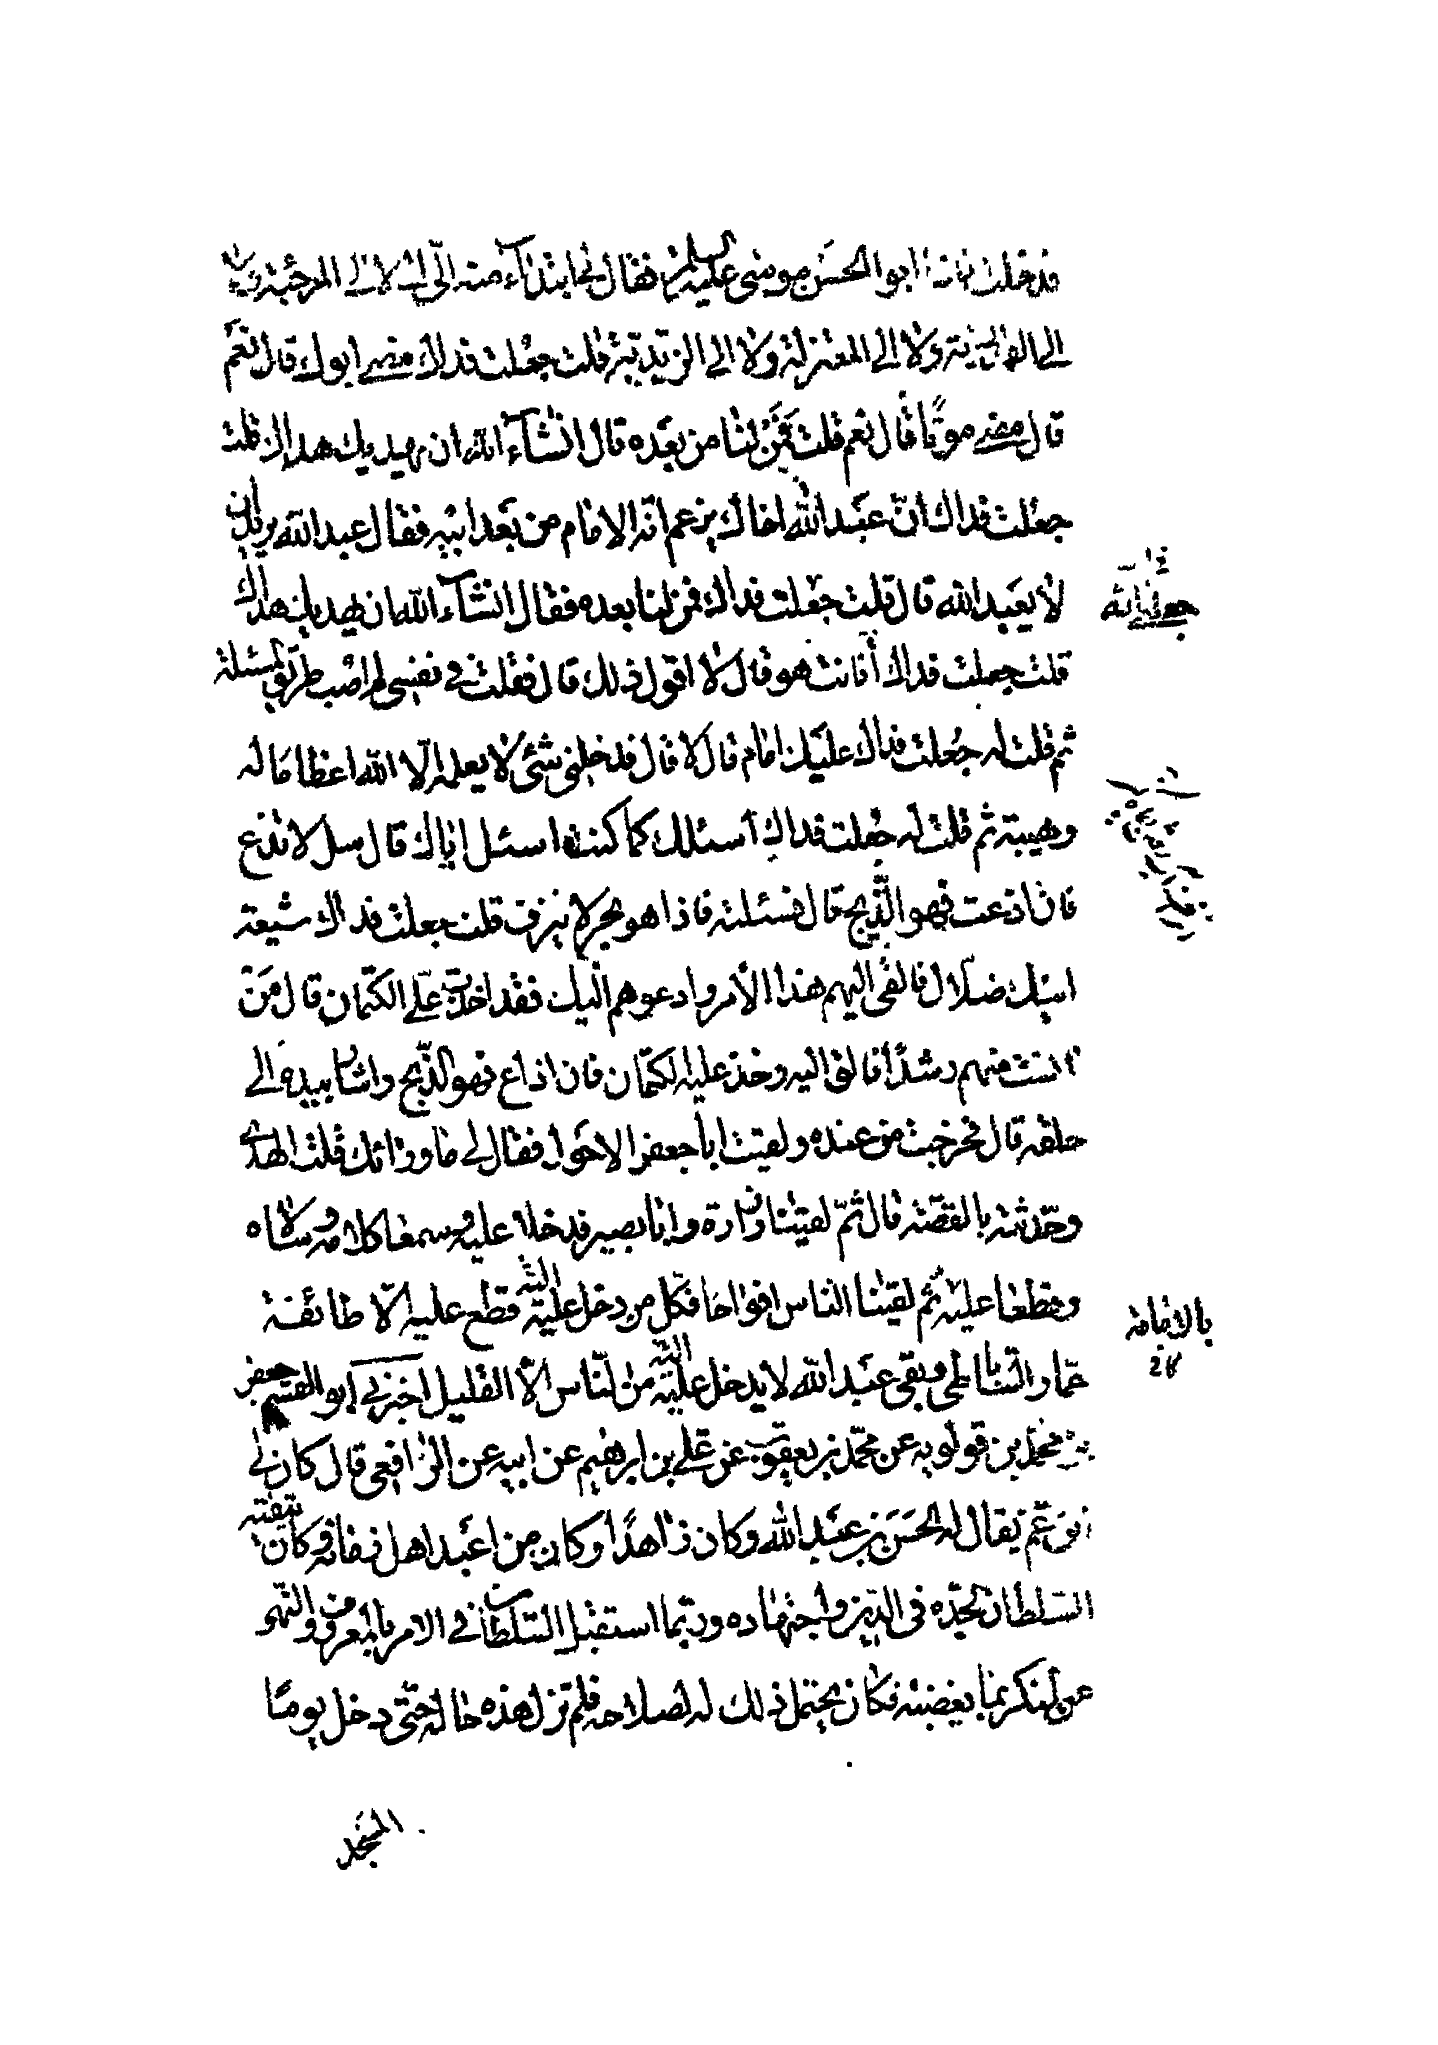 فدخلت فاذا ابو الحسن موسى عليه السلم فقال لي ابتداء منه اليّ اليّ لا الى المرجئة ولا
الى القدرية ولا الى المعتزلة ولا الى الزيدية قلت جعلت فداك مضى ابوك قال نعم
قال مضى موتا قال نعم قلت فمن لنا من بعده قال انشاء الله ان يهديك هداك قلت
جعلت فداك انّ عبد الله اخاك يزعم انه الامام من بعد ابيه فقال عبد الله يريد ان
لا يعبد الله قال قلت جعلت فداك فمن لنا بعده فقال انشاء الله ان يهديك هداك
قلت جعلت فداك أفانت هو قال لا اقول ذلك قال فقلت في نفسي لم اصب طريق المسئلة
ثم قلت له جعلت فداك عليك امام قال لا قال فدخلني شئ لا يعلمه الّا الله اعظاما له
وهيبة ثم قلت له جعلت فداك اسئلك كما كنت اسئل اباك قال سل لا تذع
فان اذعت فهو الذبح قال فسئلته فاذا هو بحر لا ينزف قلت جعلت فداك شيعة
ابيك ضلال فالقى اليهم هذا الأمر وادعوهم اليك فقد اخذت علي الكتمان قال من
انست منهم رشدا فالق اليه وخذ عليه الكتمان فان اذاع فهو الذبح واشار بيده الى
حلقه قال فخرجت من عنده ولقيت ابا جعفر الاحول فقال لي ما وراءك قلت الهدى
وحدثته بالقصة قال ثمّ لقينا زرارة وابا بصير فدخلا عليه وسمعا كلامه وساءلاه
وقطعا عليه ثم لقينا الناس افواجا فكل من دخل عليه قطع عليه الّا طائفة
عمار الساباطي وبقى عبد الله لا يدخل عليه من الناس الّا القليل اخبرني ابو القسم جعفر
بن محمد بن قولويه عن محمّد بن يعقوب عن علي بن ابرهيم عن ابيه عن الرافعي قال كان لي
ابن عم يقال له الحسن بن عبد الله وكان زاهدًا وكان من اعبد اهل زمانه وكان يتقيه
السلطان لجدّه في الدين واجتهاده وربّما استقبل السلطان في الامر بالمعروف والنهى
عن المنكر بما يغضبه فكان يحتمل ذلك له لصلاحه فلم تزل هذه حاله حتى دخل يوما
المسجد
بالامامة